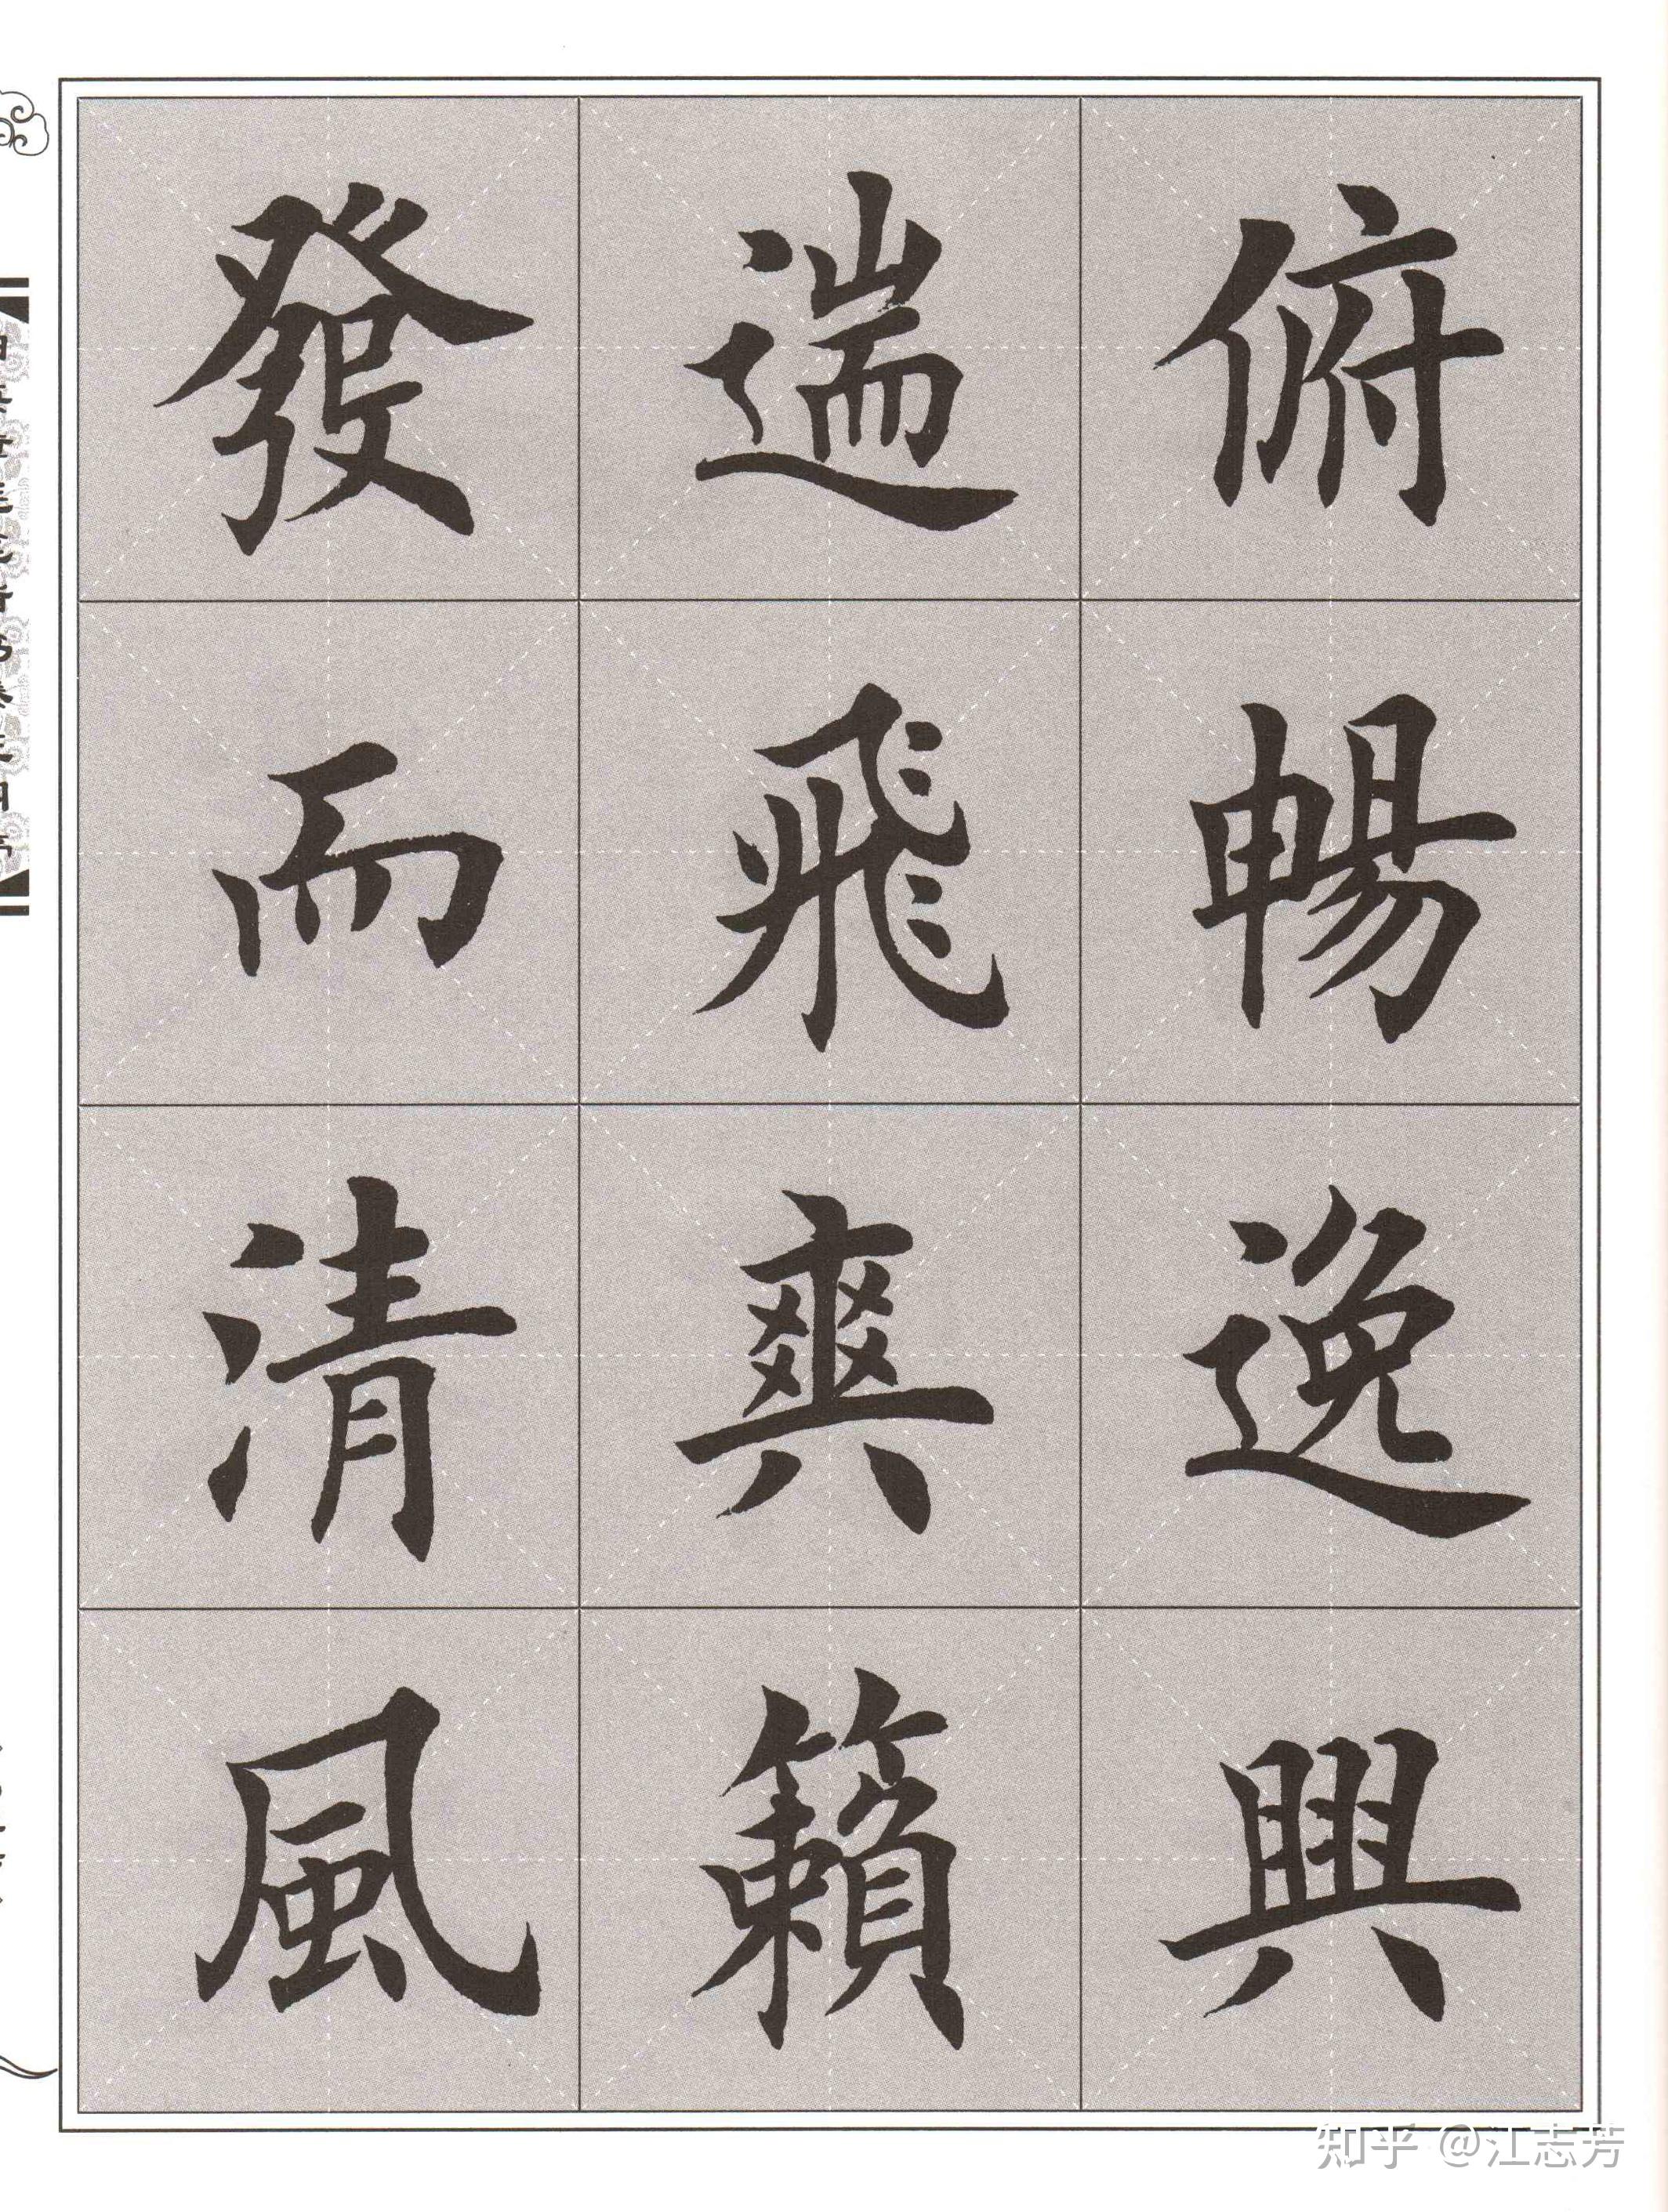 俯暢逸興
遄飛爽籟
發而清風
知乎 @江志芳